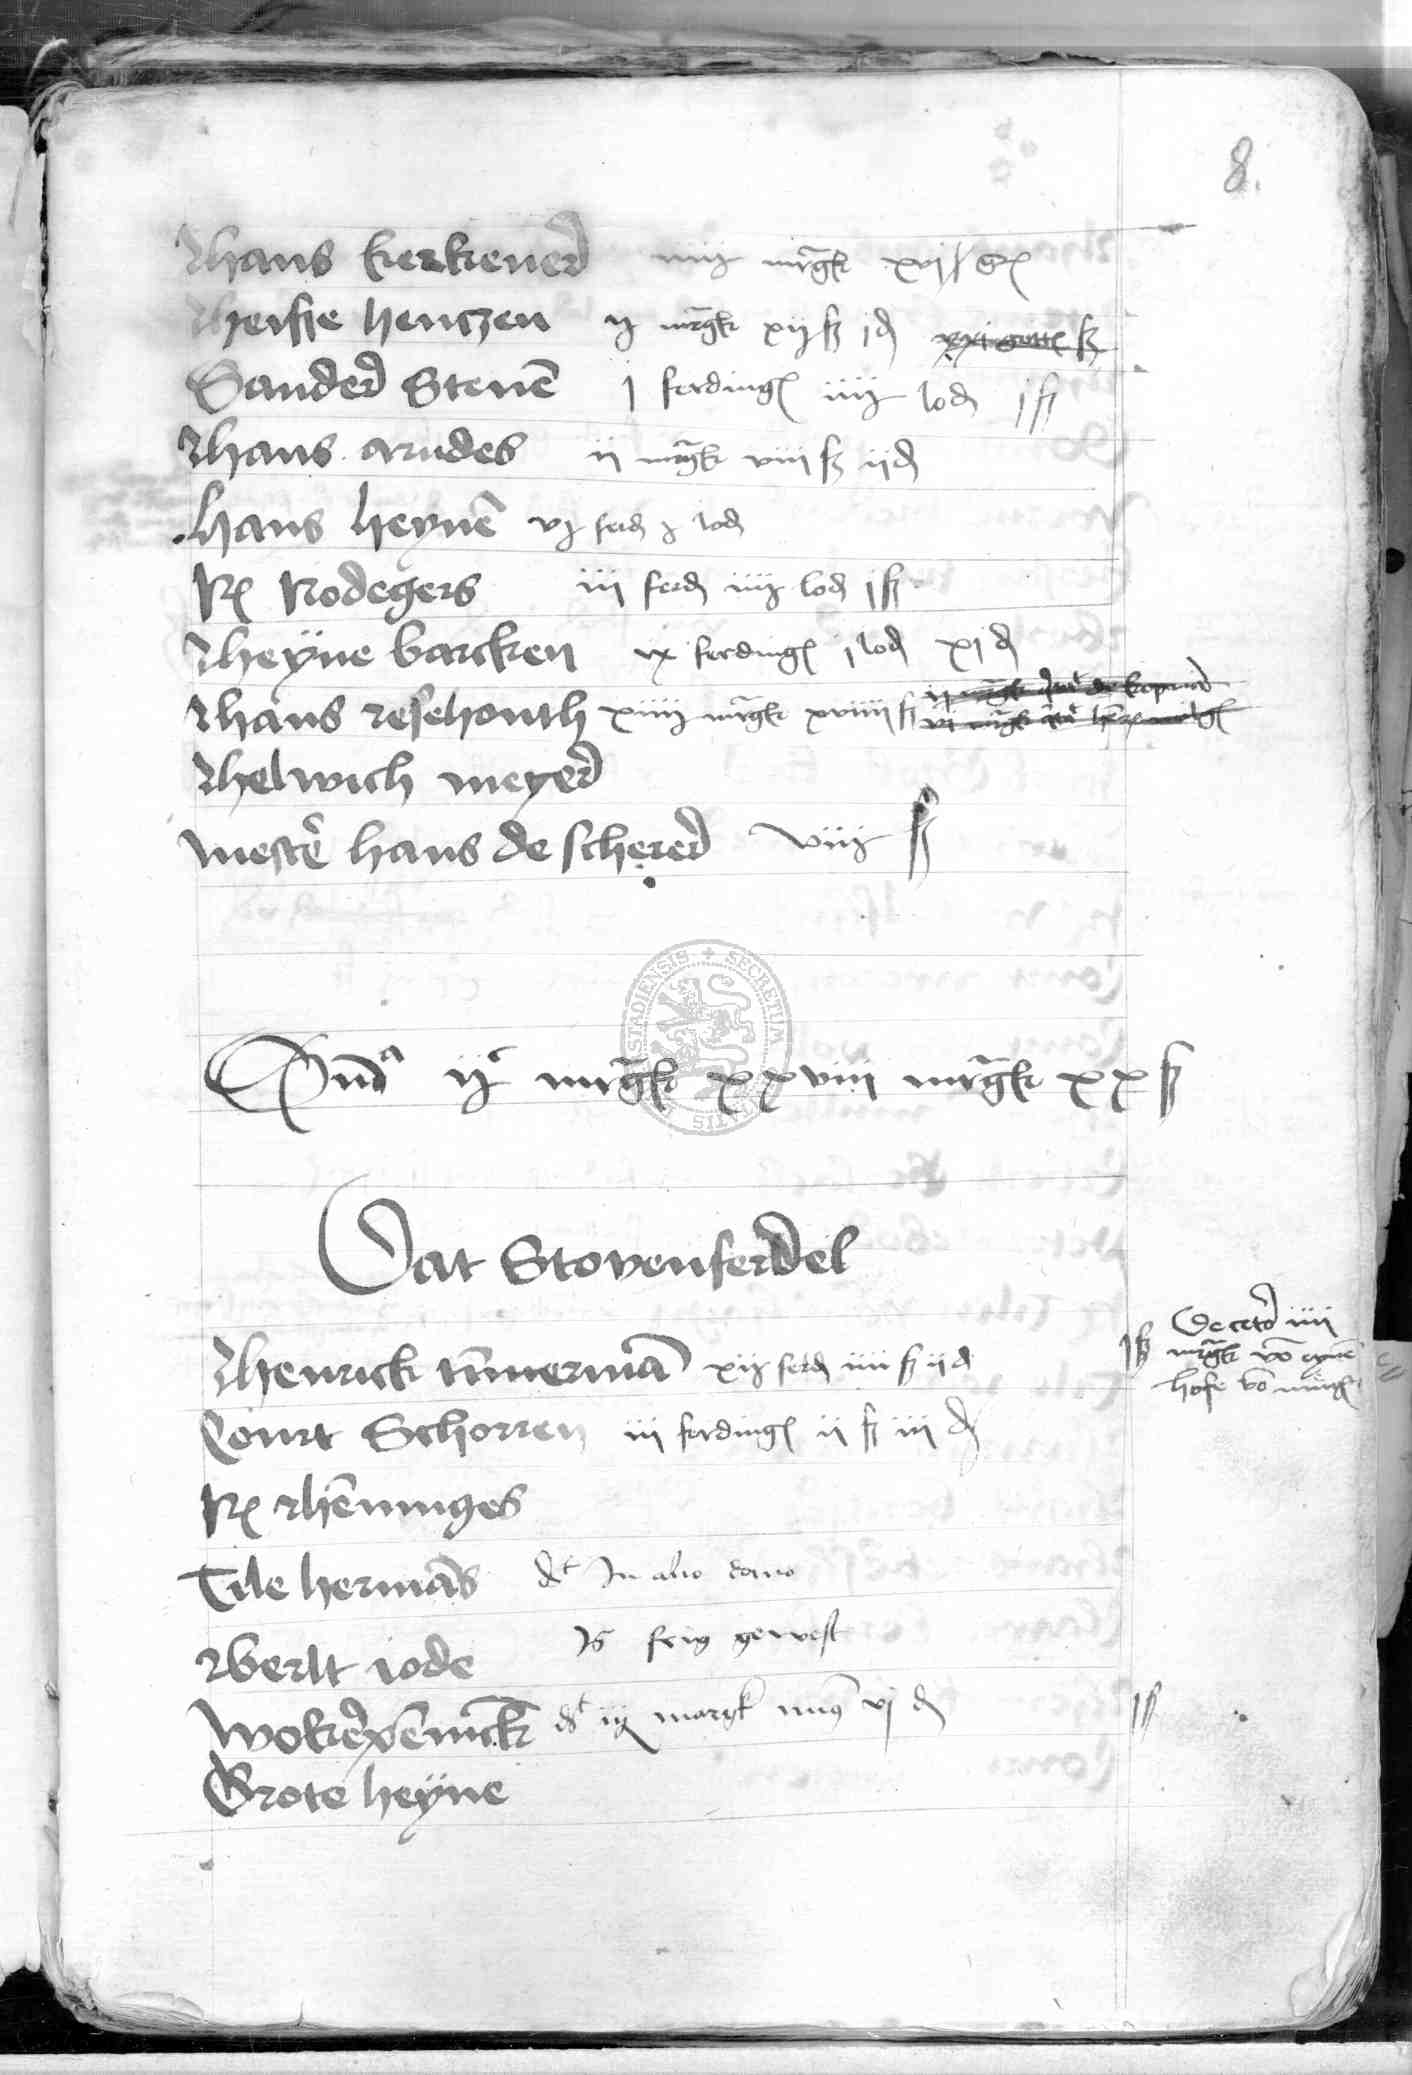 8.
Hans kerkener iiij margk
Heise hentzen ij margk xij ß j d
Sander Steuen j ferdingk iiij lod j ß
Hans arndes ij margk viii ß ij d
Hans heynen vj ferd j lod
Rodegers iii ferd iiij lod j ß
Heyne barcken ix ferdingk j lod xj d
Hans resehonth xiiij margk xviiii ß
Helwich meyer
Mester hans de scherer viij ß
Summa ijc margk xxviii margk xx ß
Dat Stovenferdel
Henrick timmerman xij ferd iiii ß ij d
j ß De cetero iiii
margk van eyme
hofe
Court Schorren iii ferdingk ij ß iij d
henninges
Tile hermans dt In alio domo
Werlt iode Is frig gewest
Wokerpennick dt iij margk minus vj d j ß
Grote heyne
SECRETUM